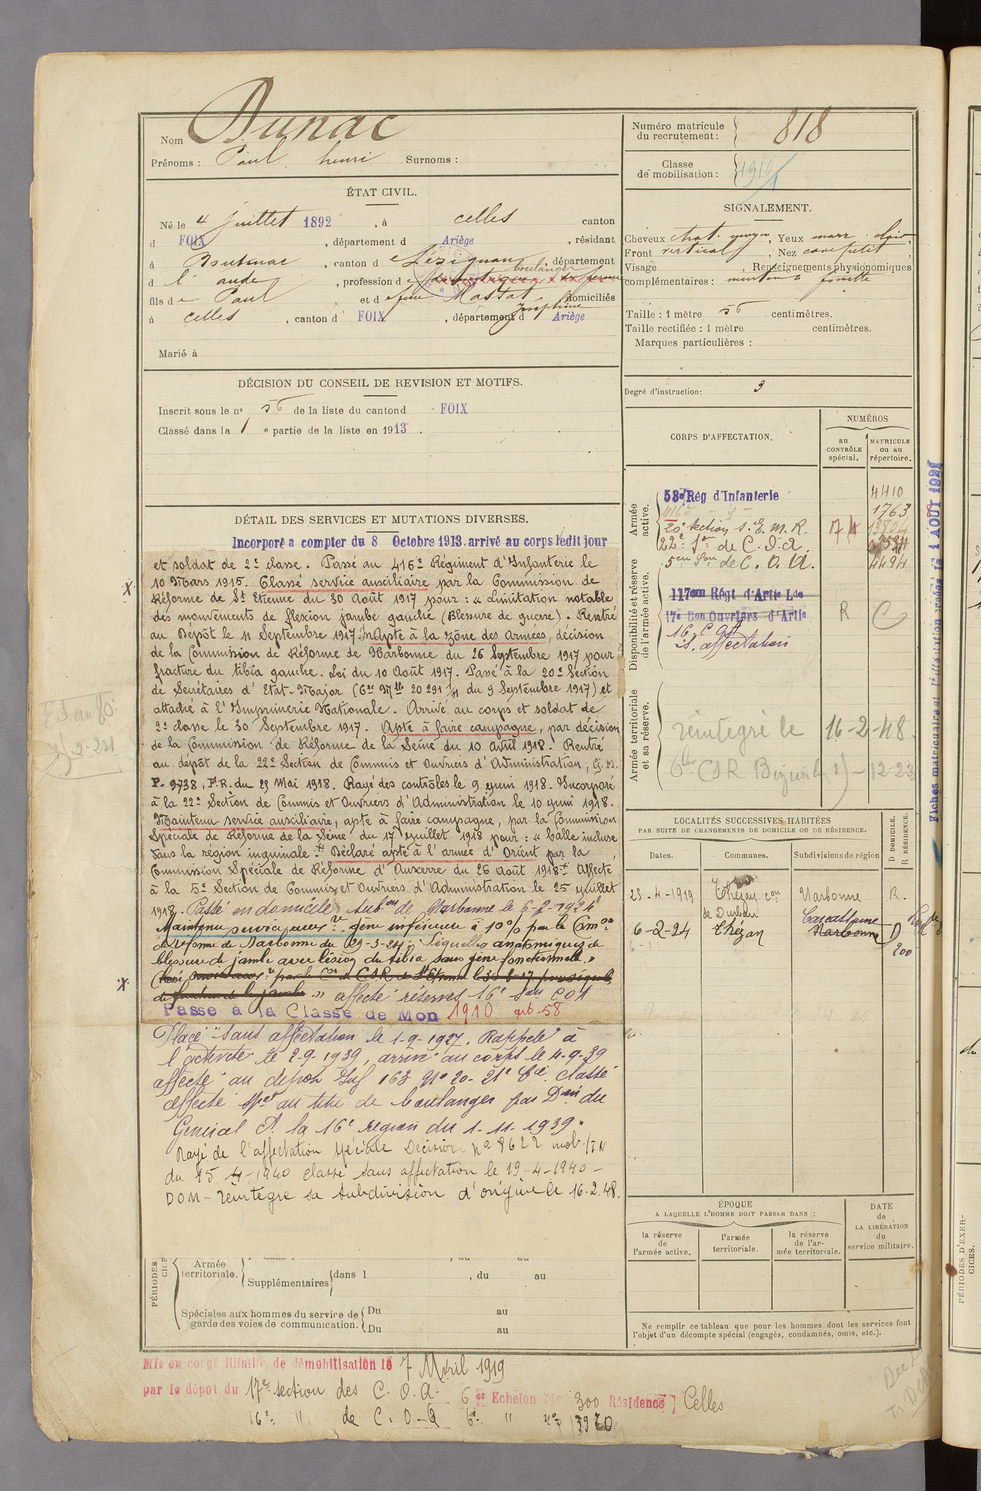 Nom Dunac
Prénoms : Paul henri Surnoms :
ÉTAT CIVIL.
Né le 4 Juillet 1892, à celles canton
d FOIX, département d Ariège, résidant
à Boutenac, canton d e Lézignan, département
d l' aude, profession d boulanger
fils de Paul et de feue Massat Joséphine domiciliés
à celles, canton d FOIX, département d Ariège
Marié à
DÉCISION DU CONSEIL DE REVISION ET MOTIFS.
Inscrit sous le no 56 de la liste du canton d FOIX
Classé dans la 1 e partie de la liste en 1913.
DÉTAIL DES SERVICES ET MUTATIONS DIVERSES.
Incorporé a compter du 8 Octobre 1913. arrivé au corps ledit jour
et soldat de 2e classe. Passé au 416e Régiment d'Infanterie le
10 Mars 1915. Classé service auxiliaire par la Commission de
Réforme de St Etienne du 30 Août 1917 pour : « Limitation notable
des mouvements de flexion jambe gauche (Blessure de guerre). Rentré
au Dépôt le 11 Septembre 1917. Inapte à la zône des Armées, décision
de la Commission de Réforme de Narbonne du 26 Septembre 1917 pour
fracture du tibia gauche. Loi du 10 Août 1917. Passé à la 20e Section
de Secrétaires d'Etat-Major (Con Mlle 20 291 1/11 du 9 Septembre 1917) et
attaché à l'Imprimerie Nationale. Arrivé au corps et soldat de
2e classe le 30 Septembre 1917. Apte à faire campagne, par décision
de la Commission de Réforme de la Seine du 10 Avril 1918. Rentré
au dépôt de la 22e Section de Commis et Ouvriers d'Administration, G. M.
P. 9738, F.R. du 29 Mai 1918. Rayé des contrôles le 9 Juin 1918. Incorporé
à la 22e Section de Commis et Ouvriers d'Administration le 10 Juin 1918.
Maintenu service auxiliaire, apte à faire campagne, par la Commission
Spéciale de Réforme de la Seine du 17 Juillet 1918 pour : « balle incluse
dans la région inguinale. » Déclaré apte à l'armée d'Orient par la
Commission Spéciale de Réforme d'Auxerre du 26 Août 1918. Affecté
à la 5e Section de Commis et Ouvriers d'Administration le 25 Juillet
1918. Passé en domicile Subon de Narbonne le 6-2-1924
Maintenu service auxre. gêne inférieure à 10% par la Comon
de réforme de Narbonne du 29-3-24 : "Séquelles anatomiques de
blessure de jambe avec lésion du tibia sans gêne fonctionnelle."
affecté réserves 16e Son COA
Passé à la Classe de Mon 1910 art. 58
Placé "Sans affectation le 1-9-1927. Rappelé à
l'activité le 2-9-1939, arrivé au corps le 4-9-39
affecté au dépôt Inf 163 No 20-21e Cie classé
affecté spal au titre de boulanger par Don du
Général Ct la 16e région du 1-11-1939.
Rayé de l'affectation spéciale Décision no 8622 mob/
du 15 4-1940 classé sans affectation le 19-4-1940 -
DOM - réintègre sa subdivision d'origine le 16.2.48.
PÉRIODES D'EXERCICES
Armée territoriale.
Supplémentaires dans l , du au
Spéciales aux hommes du service de garde des voies de communication. Du au
Du au
Mis en congé illimité de démobilisation le 7 Avril 1919
par le dépôt du 17e section des C.O.A. 6 er Echelon No 300 Résidence } Celles
16e " de C.O.A 6e " no 3920
Numéro matricule du recrutement : 818
Classe de mobilisation : 1910
SIGNALEMENT.
Cheveux chat. moyen, Yeux marr. clair
Front vertical, Nez cave petit
Visage , Renseignements physionomiques
complémentaires : menton à fossette
Taille : 1 mètre 56 centimètres.
Taille rectifiée : 1 mètre centimètres.
Marques particulières :
Degré d'instruction : 3
CORPS D'AFFECTATION.
NUMÉROS
au CONTRÔLE spécial.
MATRICULE ou au répertoire.
Armée active.
58e Rég d'Infanterie 4410
1763
20e Section S.E.M.R.
22e Son de C.O.A.
5eme Son de C.O.A. 4494
Disponibilité et réserve de l'armée active.
117eme Régt d'Artie Lde
17e Bon Ouvriers d'Artie R C
16 COA
Ss affectation
Armée territoriale et sa réserve.
réintégré le 16-2-48.
CSR Béziers 12-23
LOCALITÉS SUCCESSIVES HABITÉES
PAR SUITE DE CHANGEMENTS DE DOMICILE OU DE RÉSIDENCE.
Dates. Communes. Subdivisions de région D DOMICILE. R RÉSIDENCE.
23-4-1919 Thézan con de Durban Narbonne R.
6-2-24 Thézan Carcassonne Narbonne D
200
ÉPOQUE
A LAQUELLE L'HOMME DOIT PASSER DANS :
la réserve de l'armée active.
l'armée territoriale.
la réserve de l'armée territoriale.
DATE de LA LIBÉRATION du service militaire.
Ne remplir ce tableau que pour les hommes dont les services font
l'objet d'un décompte spécial (engagés, condamnés, omis, etc.).
PÉRIODES D'EXERCICES.